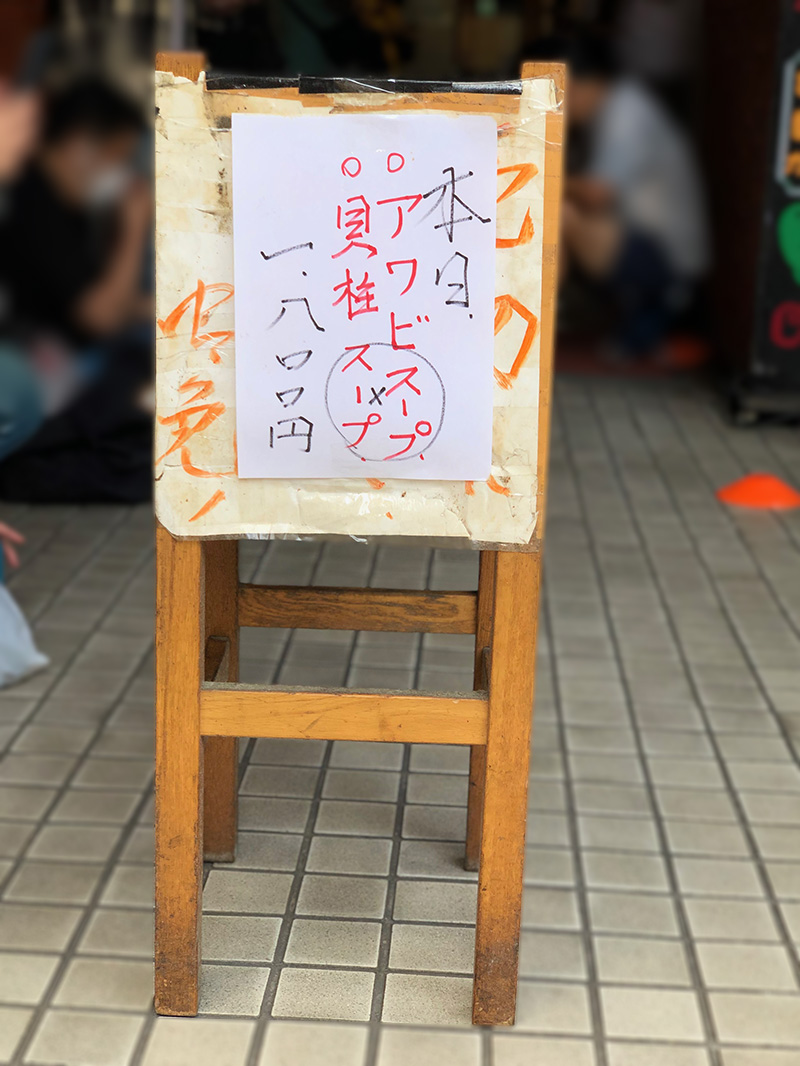 本日
○アワビスープ
×
○貝柱スープ
一、八〇〇円